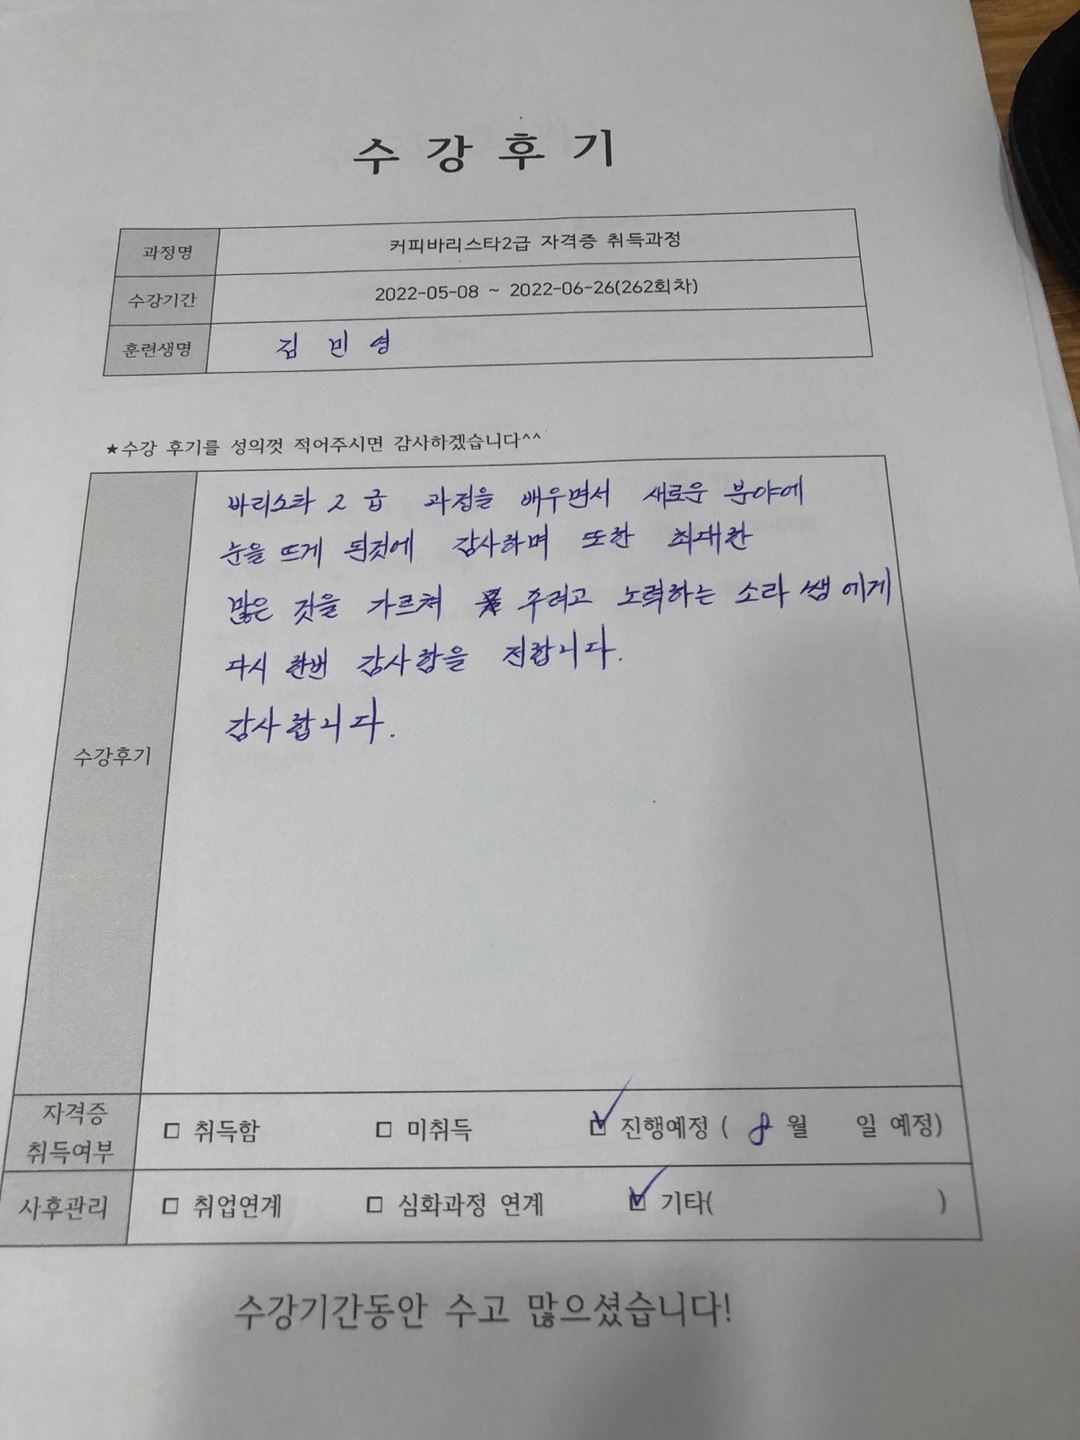 수 강 후 기
과정명 커피바리스타2급 자격증 취득과정
수강기간 2022-05-08 ~ 2022-06-26(262회차)
훈련생명 김 민 영
★수강 후기를 성의껏 적어주시면 감사하겠습니다^^
수강후기
바리스타 2급 과정을 배우면서 새로운 분야에
눈을 뜨게 된것에 감사하며 또한 최대한
많은 것을 가르쳐 주려고 노력하는 소라 쌤에게
다시 한번 감사함을 전합니다.
감사합니다.
자격증
취득여부
□ 취득함 □ 미취득 ☑ 진행예정 ( 8월 일 예정)
사후관리 □ 취업연계 □ 심화과정 연계 ☑ 기타( )
수강기간동안 수고 많으셨습니다!